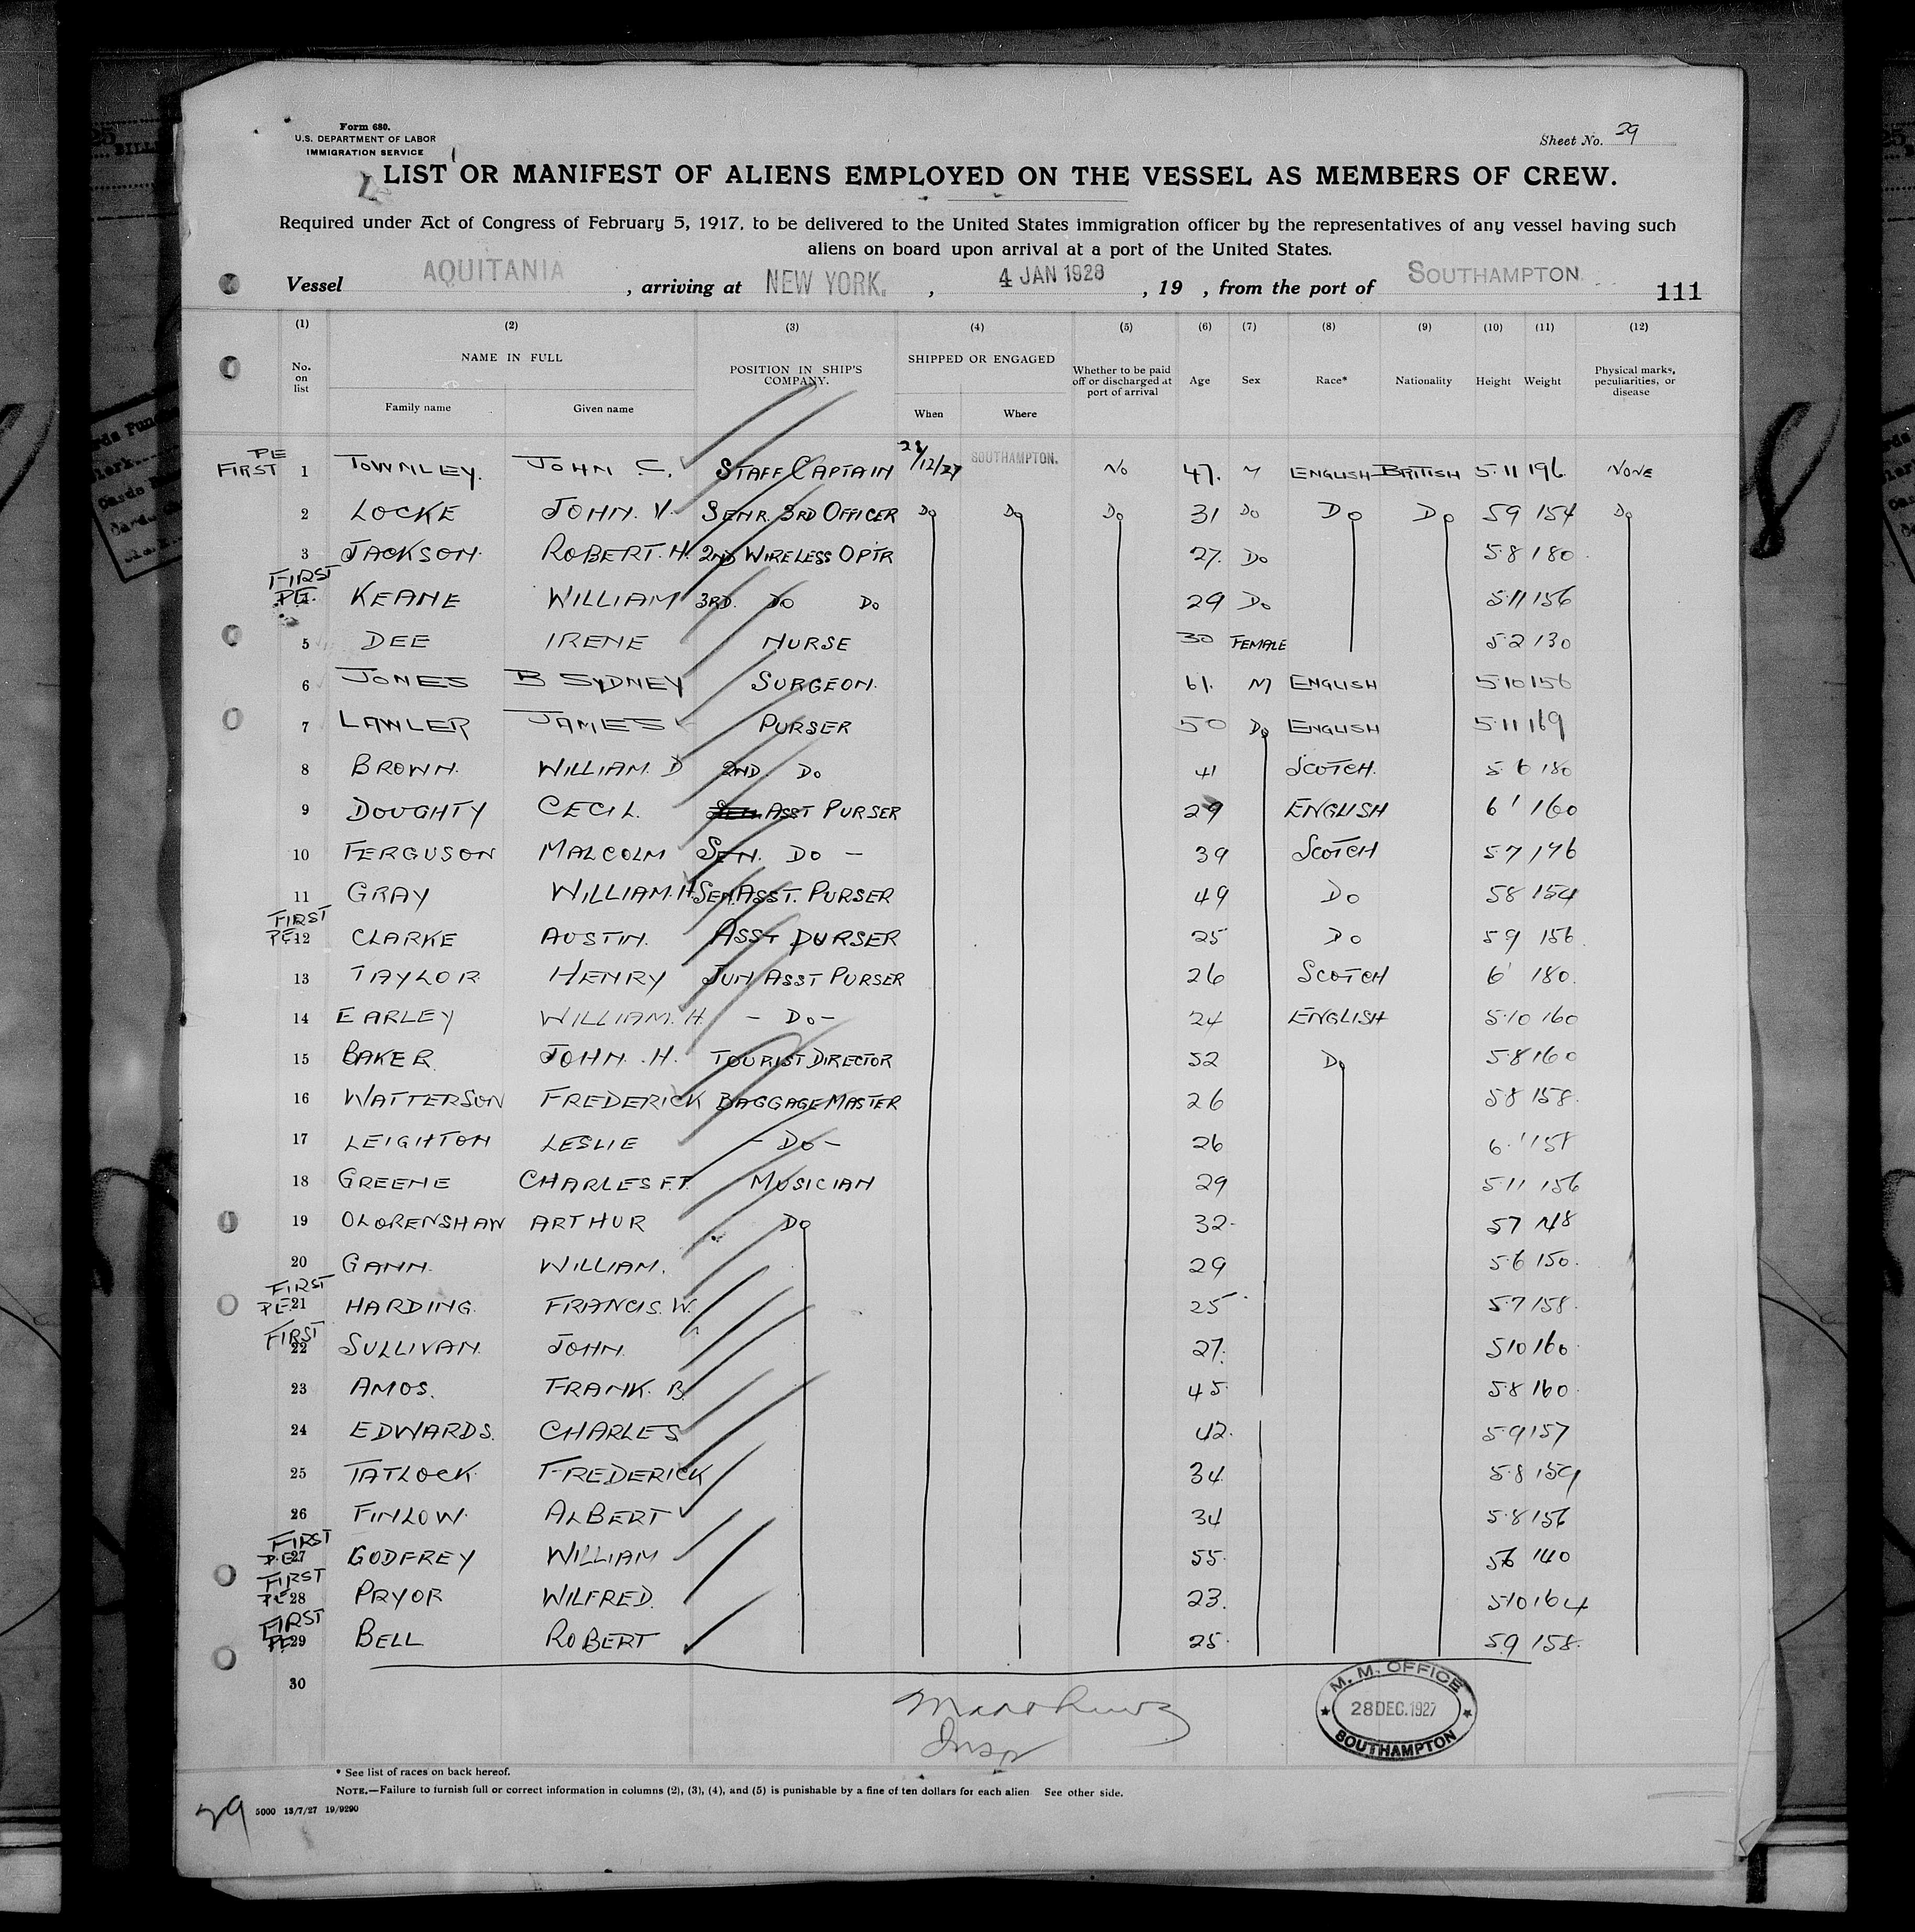 Form 680.
U.S. DEPARTMENT OF LABOR
IMMIGRATION SERVICE
Sheet No. 29
LIST OR MANIFEST OF ALIENS EMPLOYED ON THE VESSEL AS MEMBERS OF CREW.
Required under Act of Congress of February 5, 1917, to be delivered to the United States immigration officer by the representatives of any vessel having such
aliens on board upon arrival at a port of the United States.
Vessel AQUITANIA, arriving at NEW YORK., 4 JAN 1928, 19 , from the port of SOUTHAMPTON. 111
(1) (2) (3) (4) (5) (6) (7) (8) (9) (10) (11) (12)
No. on list NAME IN FULL POSITION IN SHIP'S COMPANY. SHIPPED OR ENGAGED Whether to be paid off or discharged at port of arrival Age Sex Race* Nationality Height Weight Physical marks, peculiarities, or disease
Family name Given name When Where
PE FIRST 1 TOWNLEY. JOHN C. STAFF CAPTAIN 28/12/27 SOUTHAMPTON. NO 47. M ENGLISH BRITISH 5.11 196 NONE
2 LOCKE JOHN. V. SENR. 3RD OFFICER DO DO DO 31 DO DO DO 59 154 DO
3 JACKSON. ROBERT. H. 2ND WIRELESS OPTR 27. DO 5.8 180
FIRST PE. 4 KEANE WILLIAM 3RD. DO DO 29 DO 5.11 156
5 DEE IRENE NURSE 30 FEMALE 5.2 130
6 JONES B SYDNEY SURGEON. 61. M ENGLISH 5.10 156
7 LAWLER JAMES PURSER 50 DO ENGLISH 5.11 169
8 BROWN. WILLIAM. D 2ND. DO 41 SCOTCH. 5.6 180
9 DOUGHTY CECIL. ASST PURSER 29 ENGLISH 6' 160
10 FERGUSON MALCOLM SEN. DO - 39 SCOTCH 5.7 176
11 GRAY WILLIAM. H SEN. ASST. PURSER 49 DO 58 154
FIRST PE 12 CLARKE AUSTIN. ASST PURSER 25 DO 59 156
13 TAYLOR HENRY JUN ASST PURSER 26 SCOTCH 6' 180.
14 EARLEY WILLIAM. H. - DO - 24 ENGLISH 5.10 160
15 BAKER JOHN. H. TOURIST DIRECTOR 52 DO 5.8 160
16 WATTERSON FREDERICK BAGGAGE MASTER 26 58 158.
17 LEIGHTON LESLIE - DO - 26 6.' 158
18 GREENE CHARLES F.T. MUSICIAN 29 5.11 156
19 OLORENSHAW ARTHUR DO 32. 57 148
20 GANN. WILLIAM. 29 5.6 150.
FIRST PE 21 HARDING. FRANCIS. W. 25 5.7 158.
FIRST 22 SULLIVAN. JOHN. 27. 510 160.
23 AMOS. FRANK. B. 45. 5.8 160.
24 EDWARDS. CHARLES 42. 5.9 157
25 TATLOCK. FREDERICK 34. 5.8 159
26 FINLOW. ALBERT 34 5.8 156
FIRST P.E 27 GODFREY WILLIAM 55. 56 140
FIRST PE 28 PRYOR WILFRED. 23. 5.10 164
FIRST PE 29 BELL ROBERT 25. 5.9 158.
30
Insp
M. M. OFFICE
28 DEC. 1927
SOUTHAMPTON
* See list of races on back hereof.
NOTE.—Failure to furnish full or correct information in columns (2), (3), (4), and (5) is punishable by a fine of ten dollars for each alien See other side.
29 5000 13/7/27 19/9290